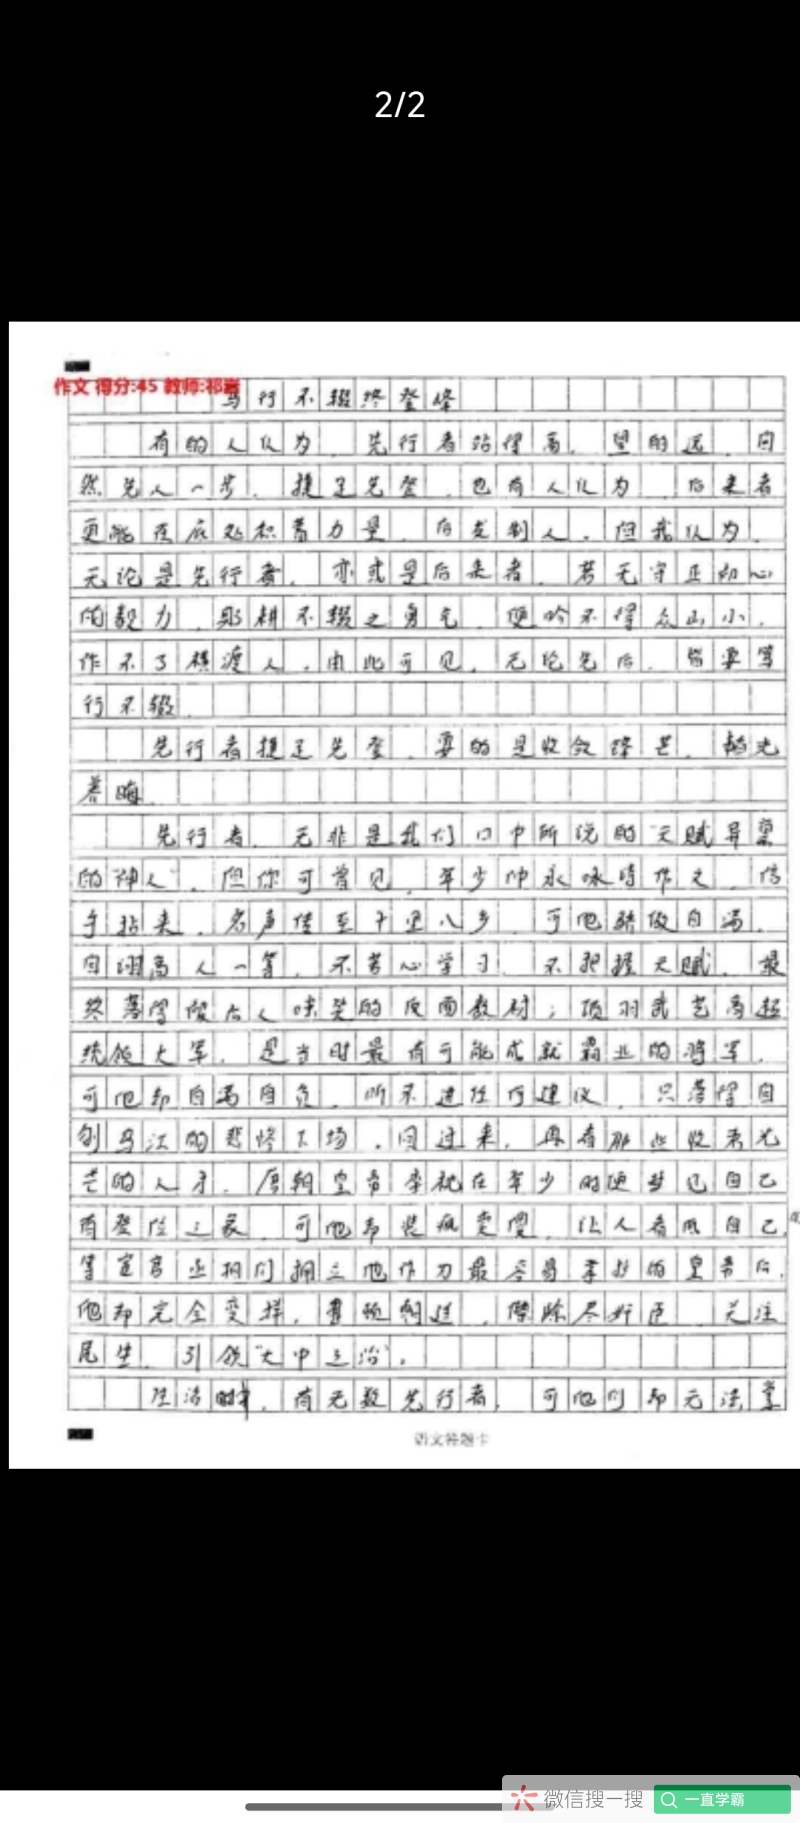 2/2
作文 得分:45 教师:祁
笃行不辍终登峰
有的人认为,先行者站得高,望的远,自
然先人一步,捷足先登,也有人认为,后来者
更能在底处积蓄力量,后发制人。但我认为,
无论是先行者,亦或是后来者,若无守正初心
的毅力,耕不辍之勇气,便吟不得众山小,
作不了横渡人。由此可见,无论先后,皆要笃
行不辍。
先行者捷足先登,要的是收敛锋芒,韬光
养晦。
先行者,无非是我们口中所说的“天赋异禀
的神人”,但你可曾见,年少仲永咏诗作文,信
手拈来,名声传至十里八乡,可他骄傲自满,
自诩高人一等,不苦心学习,不把握天赋,最
终落得被后人嗤笑的反面教材;项羽武艺高超
统领大军,是当时最有可能成就霸业的将军,
可他却自满自负,听不进任何建议,只落得自
刎乌江的悲惨下场。回过来,再看那些收起光
芒的人才,唐朝皇帝李忱在年少时便梦见自己
有登位之象,可他却装疯卖傻,让人看低自己,
等宦官丞相们拥立他作为最容易掌控的皇帝后,
他却完全变样,重顿朝廷,除尽奸臣,关注
民生,引领“大中之治”。
生活中,有无数先行者,可他们却无法掌
语文答题卡
微信搜一搜
一直学霸